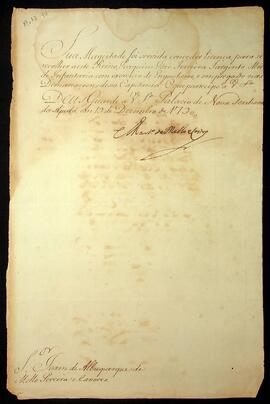 Sua Magestade foi servida conceder licença para se
recolher a este Reino, Joaquim Jozé Ferreira Sargento Mór
de Infantaria com exercicio de Engenheiro, e empregado nas
Demarcaçoens dessa Capitania: O que participo a V.S.ª
Deos Guarde a V.S.ª Palacio de Nossa Senhora
da Ajuda em 13 de Dezembro de 1790
Mart.º de Mello e Castro
S.or João de Albuquerque de
Mello Pereira e Caceres